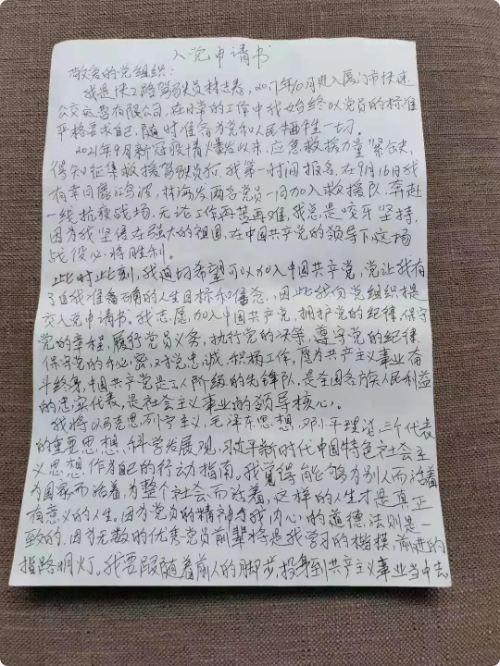 入党申请书
敬爱的党组织：
我是快1路驾驶员林志泰，2017年10月进入厦门市快速
公交运营有限公司，在日常的工作中我始终以党员的标准
严格要求自己，随时准备为党和人民牺牲一切。
2021年9月新冠疫情爆发以来，应急救援力量紧缺，
得知征集救援驾驶员后，我第一时间报名，在9月16日我
有幸同展 两名党员一同加入救援队，奔赴
一线抗疫战场，无论工作再苦再难，我总是咬牙坚持，
因为我坚信在强大的祖国，在中国共产党的领导下，这场
战役必将胜利。
此时此刻，我迫切希望可以加入中国共产党，党让我有
了更我准 确的人生目标和信念，因此我向党组织提
交入党申请书。我志愿加入中国共产党，拥护党的纪律，保守
党的章程，履行党员义务，执行党的决策，遵守党的纪律，
保守党的 密，对党忠诚，积极工作，愿为共产主义事业奋
斗终身，中国共产党是工人阶级的先锋队，是全国各族人民利益
的忠实代表，是社会主义事业的领导核心。
我将以马克思列宁主义，毛泽东思想，邓小平理论，三个代表
的重要思想，科学发展观，习近平新时代中国特色社会主
义思想作为自己的行动指南。我觉得能够为别人而活着
为国家而活着，为整个社会而活着，这样的人生才是真正
有意义的人生，因为党员的精神与我内心的道德法则是一
致的，因为无数的优秀党员前辈将是我学习的楷模，前进的
指路明灯。我要跟随着前人的脚步，投身到共产主义事业当中去